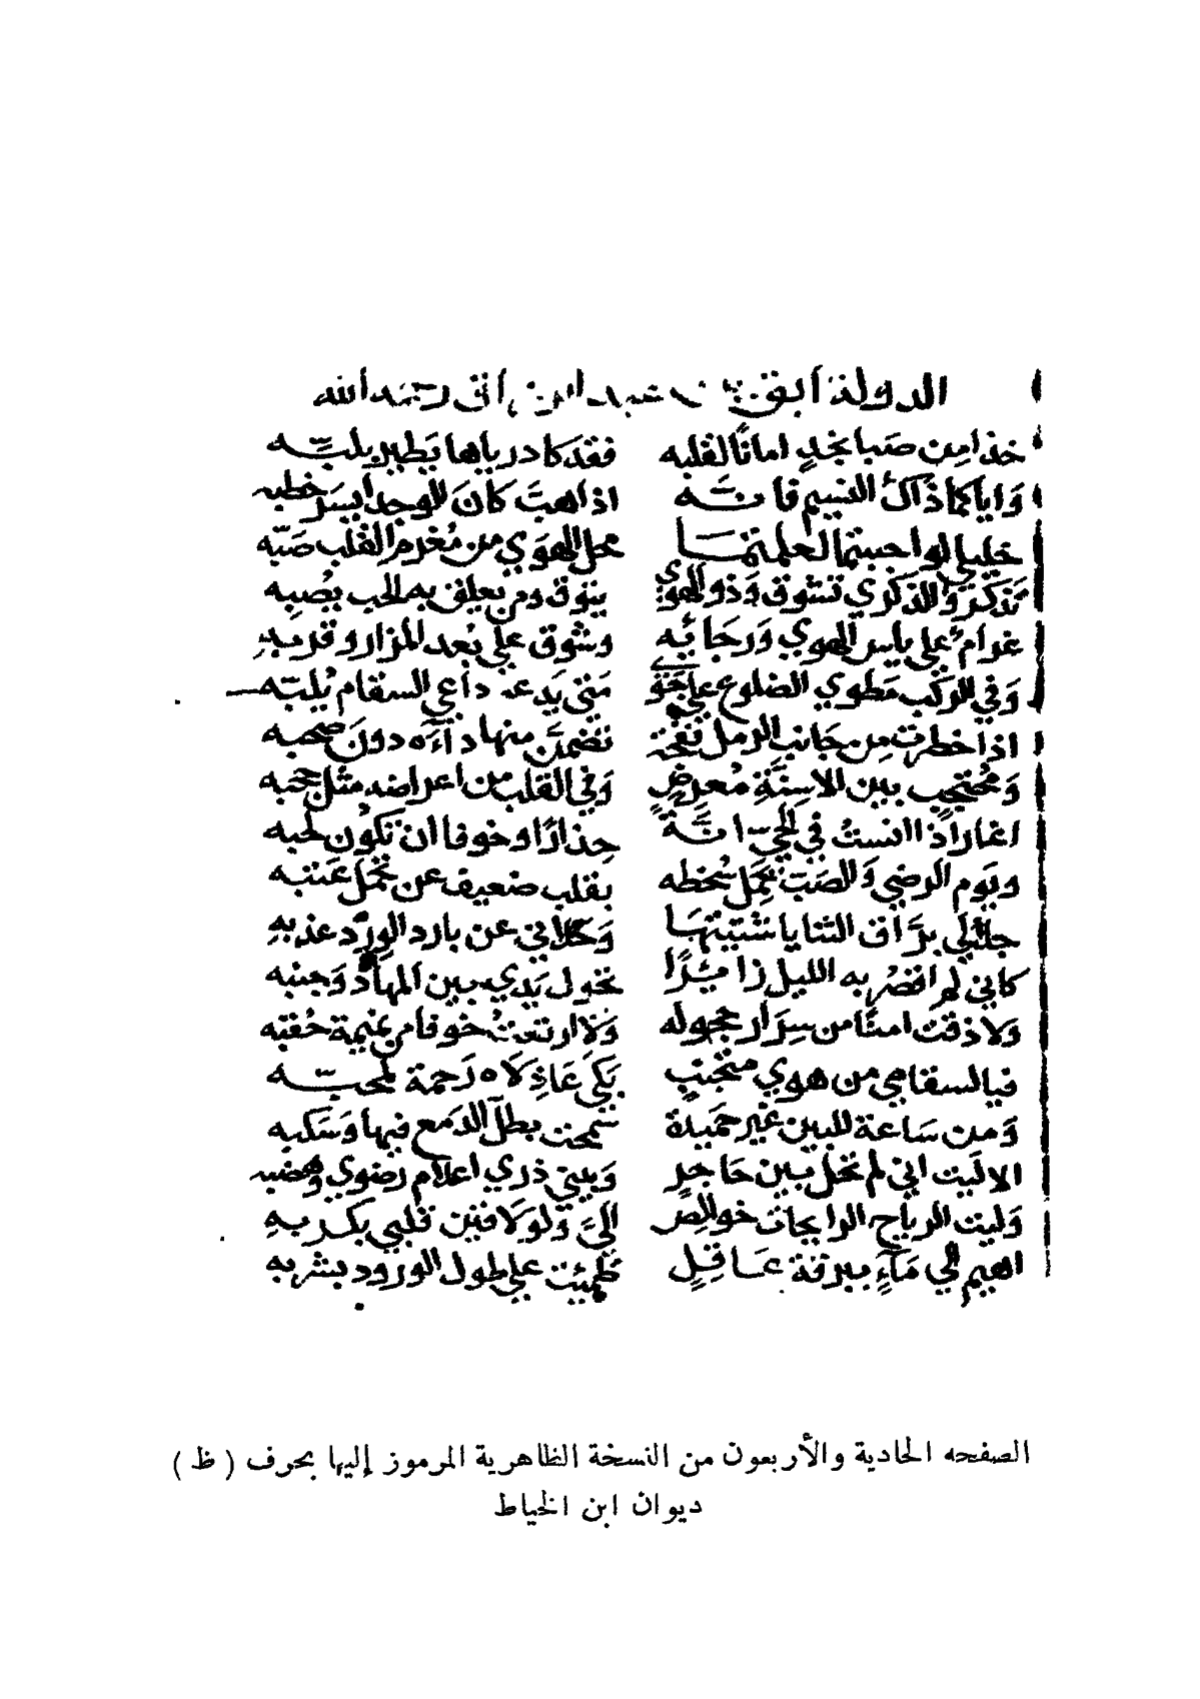 الدولة أبق عبد الرزاق رحمه الله
خذا مِن صَبا نجدٍ امانًا لقلبه فقد كاد رياها يَطير بلبّه
وَاياكما ذَاكَ النسيم فانه اذا هبَّ كانَ الوجد أيسَر خطبه
خليلي لو احببتما لعلمتما محل الهوَي من مُغرم القلب صَبّه
تذكر وَالذكري تشوق وَذو الهوي يتوق ومن يعلق به الحب يُصبِه
غرامٌ علي ياس الهوي وَرجَائه وشوق علي بُعد المزار وقربه
وَفي الركب مَطوي الضلوع علي جَوًي مَتى يَدعه داعي السقام يُلبّه
اذا خطرت مِن جَانب الرمل نفحة تضمنَ منها داءَه دونَ صحبه
وَمُحتجب بين الاسِنَّةِ مُعرِضٍ وَفي القلب من اعراضه مثل حجبه
اغار اذا انستُ في الحيّ انَّة حِذارًا وخوفا ان تكوُن لحبه
ويوم الرضي وَالصَبّ يحمل سُخطه بقلب ضعيف عن تحمّل عَتبه
جلالي برَّاق الثنايا شتيتهَا وَحَلاني عن بارد الورد عذبهِ
كاني لم اقصُر به الليل زائرًا تحول يَدي بين المهاد وَجنبه
وَلا ذقت امنًا من سِرَار حجوله وَلا ارتعتُ خوفا من نميمة حُقبه
فيا لسقامي من هوي متجنبٍ بَكي عَاذِلاَه رَحمة لمحبّه
وَمن سَاعة للبين غير حَميدة سمحت بطلّ الدَمع فيها وَسَكبه
الا لَيت اني لم تحُل بين حَاجرٍ وَبيني ذري اعلام رضوي وَهضبه
وَليت الرياح الرايحات خوالصٌ اليَّ وَلو لاقين قلبي بكربهِ
اهيم الي مَاءٍ ببرقة عَاقِلٍ ظمئت علي طول الورود بشربه
الصفحه الحادية والأربعون من النسخة الظاهرية المرموز إليها بحرف ( ظ )
ديوان ابن الخياط